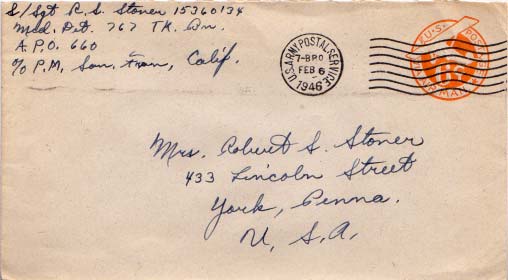 S/Sgt R. S. Stoner 15360134
Med. Det. 767 TK. Bn.
A.P.O. 660
c/o P.M, San. Fran, Calif.
U.S. ARMY POSTAL SERVICE
7-BPO
FEB 6
1946
U.S. POSTAGE
AIR MAIL
Mrs. Robert S. Stoner
433 Lincoln Street
York, Penna.
U. S. A.